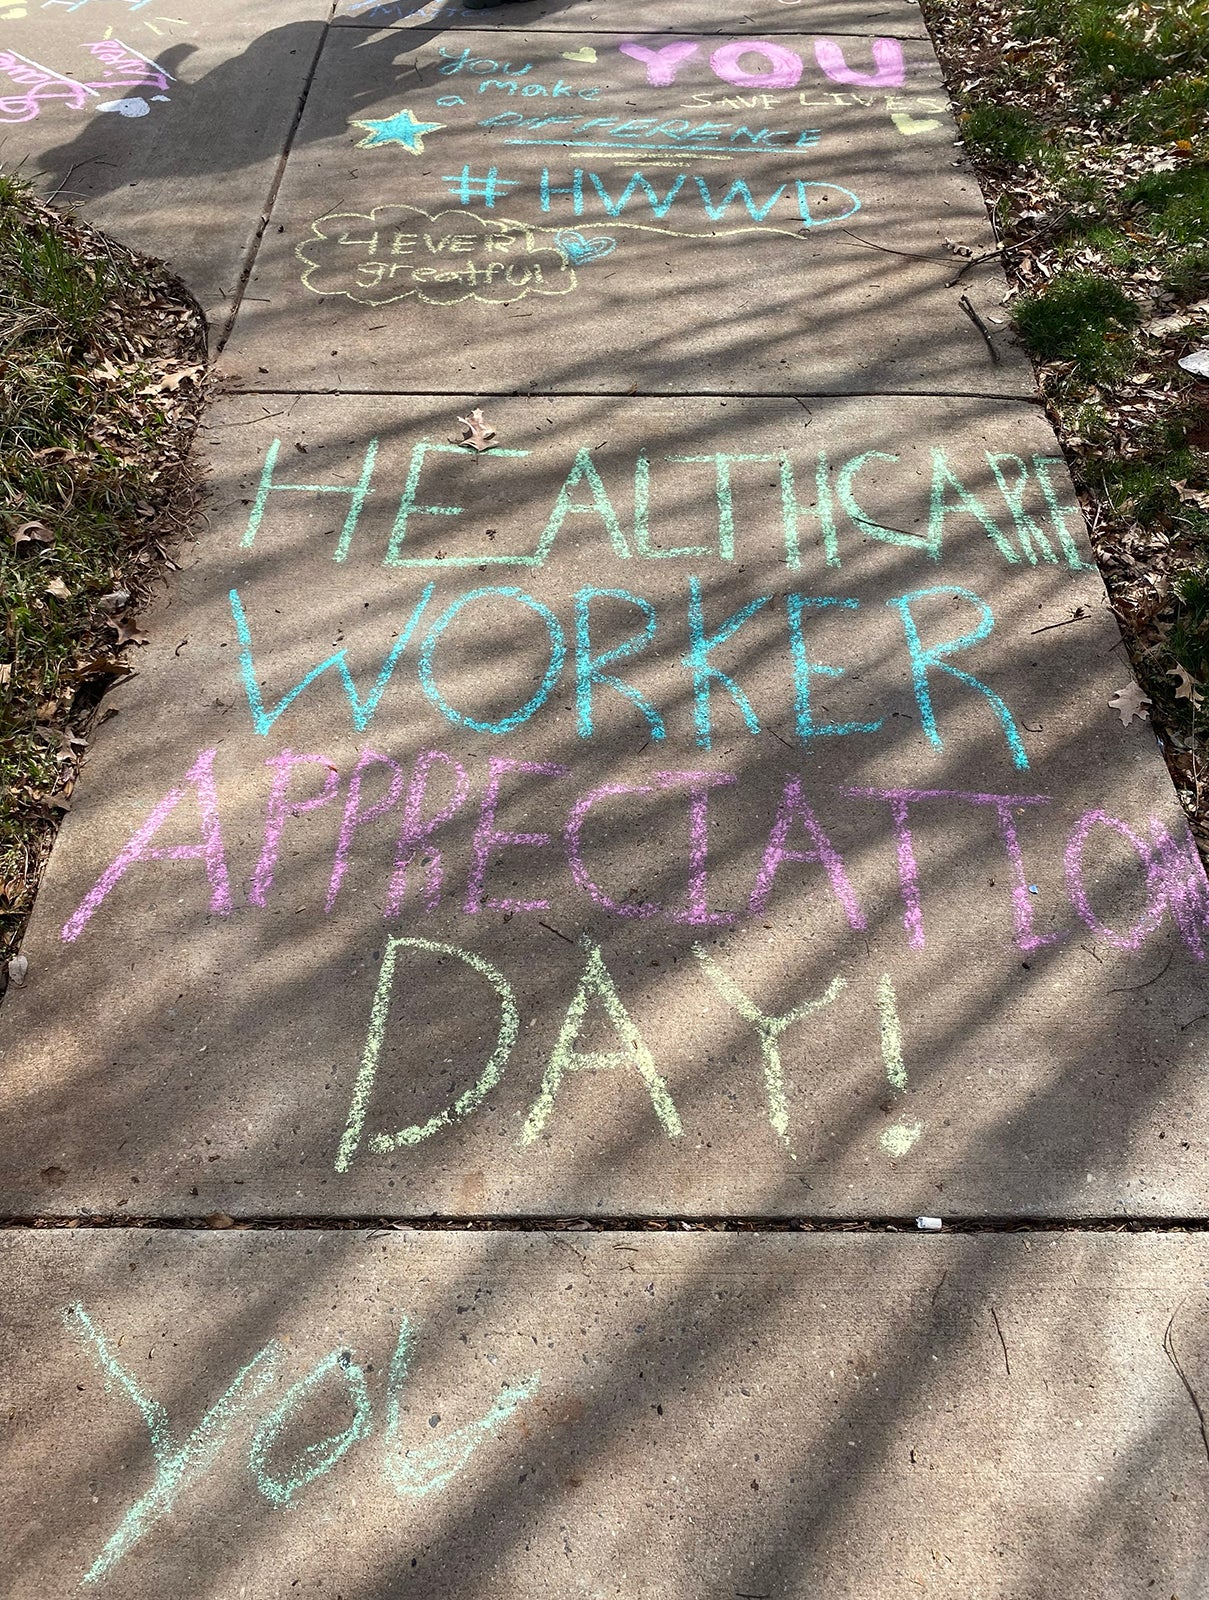 YOU
SAVE LIVES
You
make
a
DIFFERENCE
#HWWD
4EVER
greatful
HEALTHCARE
WORKER
APPRECIATION
DAY!
YOU